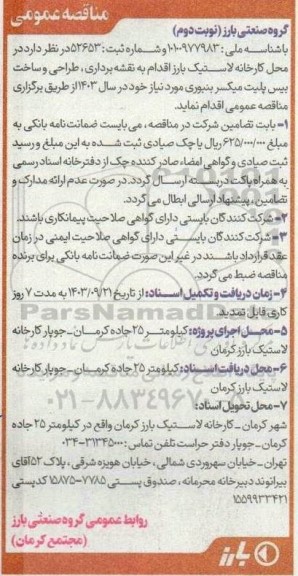 مناقصه عمومی
گروه صنعتی بارز (نوبت دوم)
باشناسه ملی : ۱۰۱۰۰۹۷۷۹۸۳ و شماره ثبت : ۵۲۶۵۳ در نظر دارد در
محل کارخانه لاستیک بارز اقدام به نقشه برداری ، طراحی و ساخت
بیس پلیت میکسر بنبوری مورد نیاز خود در سال ۱۴۰۳ از طریق برگزاری
مناقصه عمومی اقدام نماید.
۱- بابت تضامین شرکت در مناقصه ، می بایست ضمانت نامه بانکی به
مبلغ ۶۲۵/۰۰۰/۰۰۰ ریال یا چک صیادی ثبت شده به این مبلغ و رسید
ثبت صیادی و گواهی امضاء صادر کننده چک از دفترخانه اسناد رسمی
به همراه پاکت دربسته ارسال گردد. در صورت عدم ارائه مدارک و
تضامین ، پیشنهاد ارسالی ابطال می گردد.
۲- شرکت کنندگان بایستی دارای گواهی صلاحیت پیمانکاری باشند.
۳- شرکت کنندگان بایستی دارای گواهی صلاحیت ایمنی در زمان
عقد قرارداد باشند در غیر این صورت ضمانت نامه بانکی برای برنده
مناقصه ضبط می گردد.
۴- زمان دریافت و تکمیل اسناد: از تاریخ ۱۴۰۳/۰۹/۲۱ به مدت ۷ روز
کاری قابل تمدید.
۵- محل اجرای پروژه: کیلومتر ۲۵ جاده کرمان - جوپار کارخانه
لاستیک بارز کرمان
۶- محل دریافت اسناد: کیلومتر ۲۵ جاده کرمان - جوپار کارخانه
لاستیک بارز کرمان
۷- محل تحویل اسناد:
شهر کرمان - کارخانه لاستیک بارز کرمان واقع در کیلومتر ۲۵ جاده
کرمان - جوپار دفتر حراست تلفن تماس : ۳۱۳۴۵۰۰۰-۰۳۴
تهران - خیابان سهروردی شمالی ، خیابان هویزه شرقی ، پلاک ۵۲ آقای
بیرانوند دبیرخانه محرمانه ، صندوق پستی ۷۷۸۵-۱۵۸۷۵ کدپستی
۱۵۵۹۹۳۳۴۲۱
روابط عمومی گروه صنعتی بارز
(مجتمع کرمان)
بارز
ParsNamadData
۰۲۱-۸۸۳۴۹۶۷۰